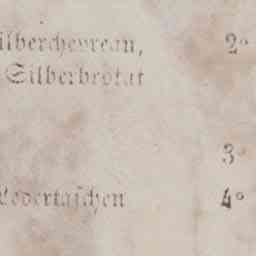 ilberchevreau, 2°
Silberbrokat
3°
Ledertaschen 4°